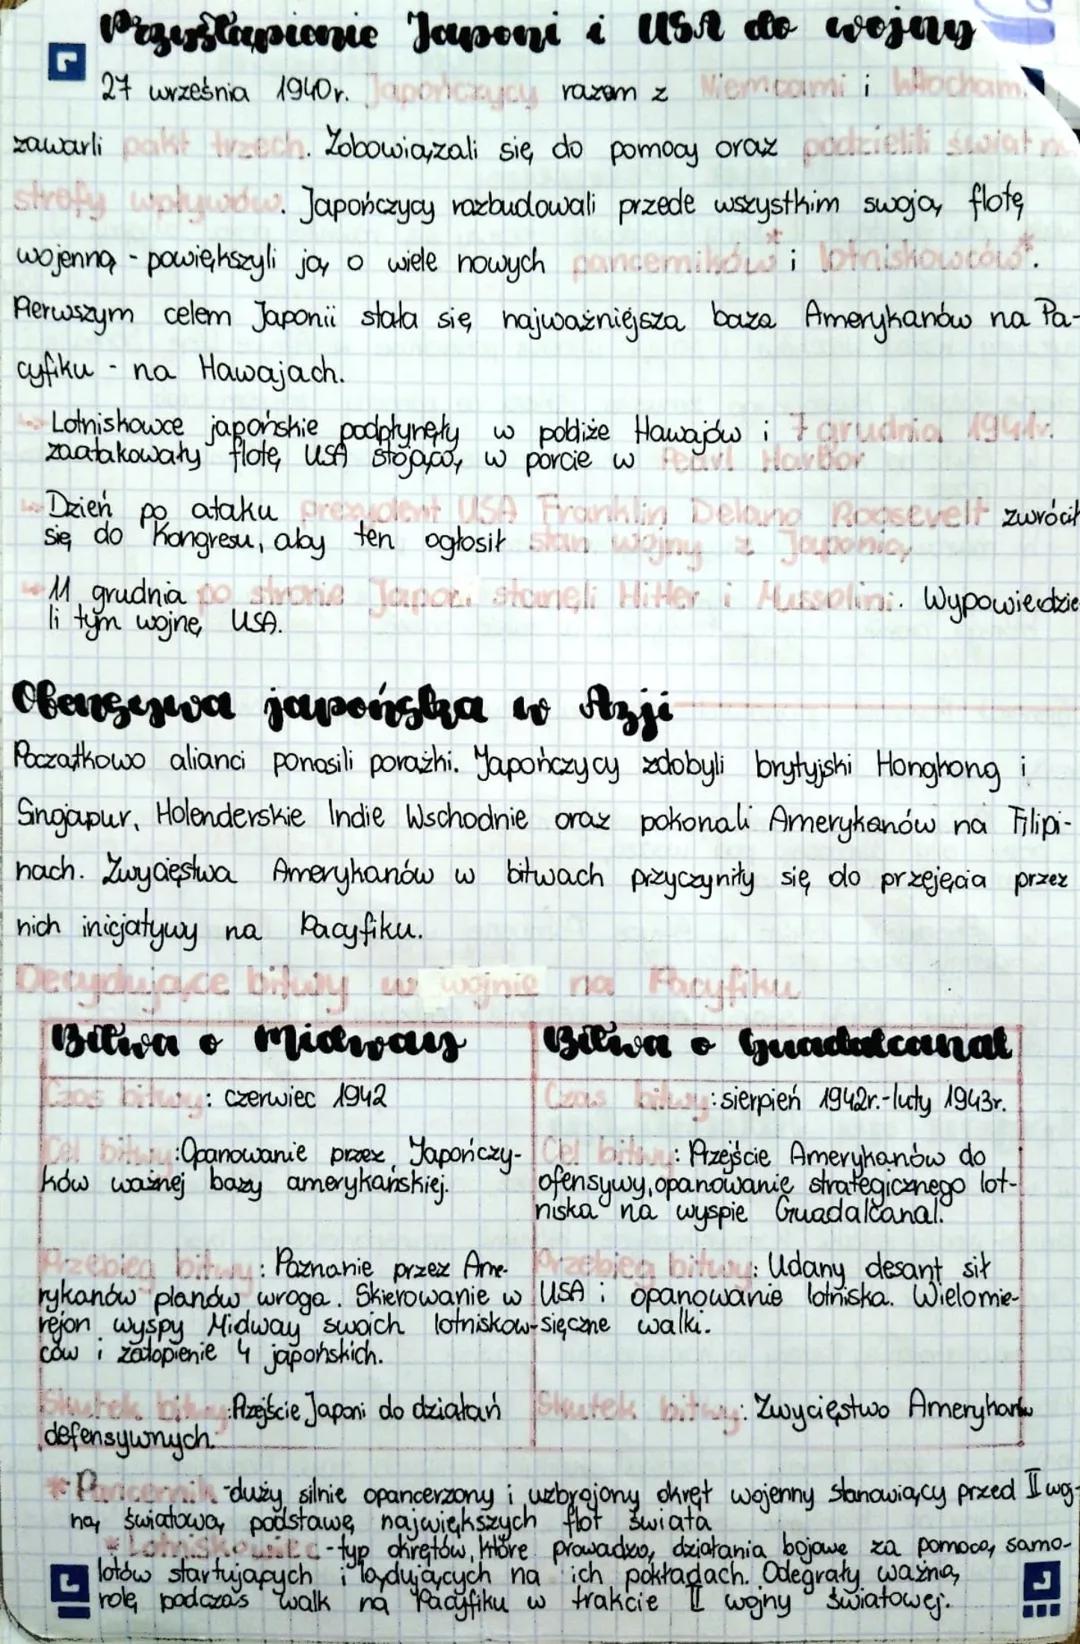 Przystąpienie Japoni i USA do wojny
27 września 1940r. Japończycy razem z Niemcami i Włochami
zawarli pakt trzech. Zobowiązali się do pomocy oraz podzielili świat na
strefy wpływów. Japończycy rozbudowali przede wszystkim swoją flotę
wojenną - powiększyli ją o wiele nowych pancerników* i lotniskowców*.
Pierwszym celem Japonii stała się najważniejsza baza Amerykanów na Pa-
cyfiku - na Hawajach.
Lotniskowce japońskie podpłynęły w pobliże Hawajów i 7 grudnia 1941r.
zaatakowały flotę USA stojącą w porcie w Pearl Harbor
Dzień po ataku prezydent USA Franklin Delano Roosevelt zwrócił
się do Kongresu, aby ten ogłosił stan wojny z Japonią
11 grudnia po stronie Japoni stanęli Hitler i Mussolini. Wypowiedzie-
li tym wojnę USA.
Ofensywa japońska w Azji
Początkowo alianci ponosili porażki. Japończycy zdobyli brytyjski Honghong i
Singapur, Holenderskie Indie Wschodnie oraz pokonali Amerykanów na Filipi-
nach. Zwycięstwa Amerykanów w bitwach przyczyniły się do przejęcia przez
nich inicjatywy na Pacyfiku.
Decydujące bitwy w wojnie na Pacyfiku
Bitwa o Midway
Czas bitwy: czerwiec 1942
Cel bitwy: Opanowanie przez Japończy-
ków ważnej bazy amerykańskiej.
Przebieg bitwy: Poznanie przez Ame-
rykanów planów wroga. Skierowanie w
rejon wyspy Midway swoich lotniskow-
ców i zatopienie 4 japońskich.
Skutek bitwy: Przejście Japoni do działań
defensywnych.
Bitwa o Guadalcanal
Czas bitwy: sierpień 1942r.-luty 1943r.
Cel bitwy: Przejście Amerykanów do
ofensywy, opanowanie strategicznego lot-
niska na wyspie Guadalcanal.
Przebieg bitwy: Udany desant sił
USA i opanowanie lotniska. Wielomie-
sięczne walki.
Skutek bitwy: Zwycięstwo Amerykanów
* Pancernik - duży, silnie opancerzony i uzbrojony okręt wojenny stanowiący przed II woj-
ną światową podstawę największych flot świata
* Lotniskowiec - typ okrętów, które prowadzą działania bojowe za pomocą samo-
lotów startujących i lądujących na ich pokładach. Odegrały ważną
rolę podczas walk na Pacyfiku w trakcie II wojny światowej.